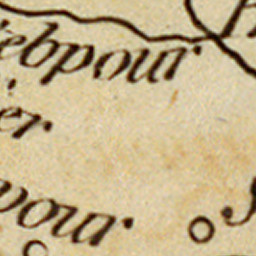 ebpour
er.
pour.